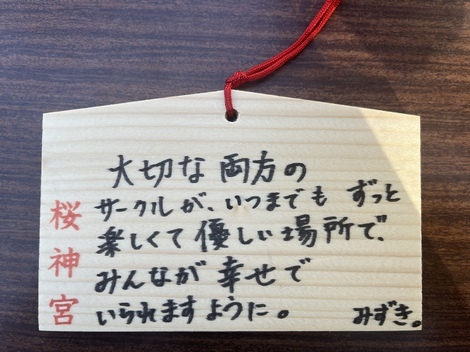 大切な両方の
サークルが、いつまでも ずっと
楽しくて優しい場所で、
みんなが幸せで
いられますように。
みずき。
桜神宮